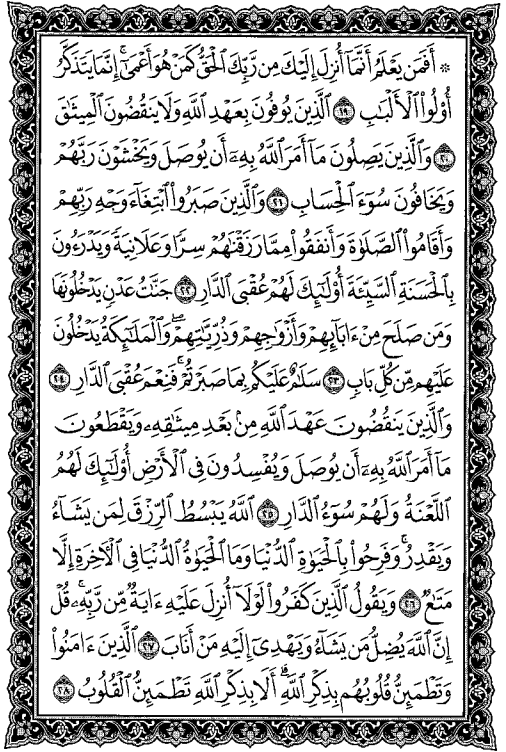 ۞ أَفَمَن يَعْلَمُ أَنَّمَا أُنزِلَ إِلَيْكَ مِن رَّبِّكَ الْحَقُّ كَمَنْ هُوَ أَعْمَىٰٓ ۚ إِنَّمَا يَتَذَكَّرُ
أُو۟لُوا۟ الْأَلْبَٰبِ ١٩ الَّذِينَ يُوفُونَ بِعَهْدِ اللَّهِ وَلَا يَنقُضُونَ الْمِيثَٰقَ
٢٠ وَالَّذِينَ يَصِلُونَ مَآ أَمَرَ اللَّهُ بِهِۦٓ أَن يُوصَلَ وَيَخْشَوْنَ رَبَّهُمْ
وَيَخَافُونَ سُوٓءَ الْحِسَابِ ٢١ وَالَّذِينَ صَبَرُوا۟ ابْتِغَآءَ وَجْهِ رَبِّهِمْ
وَأَقَامُوا۟ الصَّلَوٰةَ وَأَنفَقُوا۟ مِمَّا رَزَقْنَٰهُمْ سِرًّا وَعَلَانِيَةً وَيَدْرَءُونَ
بِالْحَسَنَةِ السَّيِّئَةَ أُو۟لَٰٓئِكَ لَهُمْ عُقْبَى الدَّارِ ٢٢ جَنَّٰتُ عَدْنٍ يَدْخُلُونَهَا
وَمَن صَلَحَ مِنْ ءَابَآئِهِمْ وَأَزْوَٰجِهِمْ وَذُرِّيَّٰتِهِمْ ۖ وَالْمَلَٰٓئِكَةُ يَدْخُلُونَ
عَلَيْهِم مِّن كُلِّ بَابٍ ٢٣ سَلَٰمٌ عَلَيْكُم بِمَا صَبَرْتُمْ ۚ فَنِعْمَ عُقْبَى الدَّارِ ٢٤
وَالَّذِينَ يَنقُضُونَ عَهْدَ اللَّهِ مِنۢ بَعْدِ مِيثَٰقِهِۦ وَيَقْطَعُونَ
مَآ أَمَرَ اللَّهُ بِهِۦٓ أَن يُوصَلَ وَيُفْسِدُونَ فِى الْأَرْضِ أُو۟لَٰٓئِكَ لَهُمُ
اللَّعْنَةُ وَلَهُمْ سُوٓءُ الدَّارِ ٢٥ اللَّهُ يَبْسُطُ الرِّزْقَ لِمَن يَشَآءُ
وَيَقْدِرُ ۚ وَفَرِحُوا۟ بِالْحَيَوٰةِ الدُّنْيَا وَمَا الْحَيَوٰةُ الدُّنْيَا فِى الْءَاخِرَةِ إِلَّا
مَتَٰعٌ ٢٦ وَيَقُولُ الَّذِينَ كَفَرُوا۟ لَوْلَآ أُنزِلَ عَلَيْهِ ءَايَةٌ مِّن رَّبِّهِۦ ۗ قُلْ
إِنَّ اللَّهَ يُضِلُّ مَن يَشَآءُ وَيَهْدِىٓ إِلَيْهِ مَنْ أَنَابَ ٢٧ الَّذِينَ ءَامَنُوا۟
وَتَطْمَئِنُّ قُلُوبُهُم بِذِكْرِ اللَّهِ ۗ أَلَا بِذِكْرِ اللَّهِ تَطْمَئِنُّ الْقُلُوبُ ٢٨